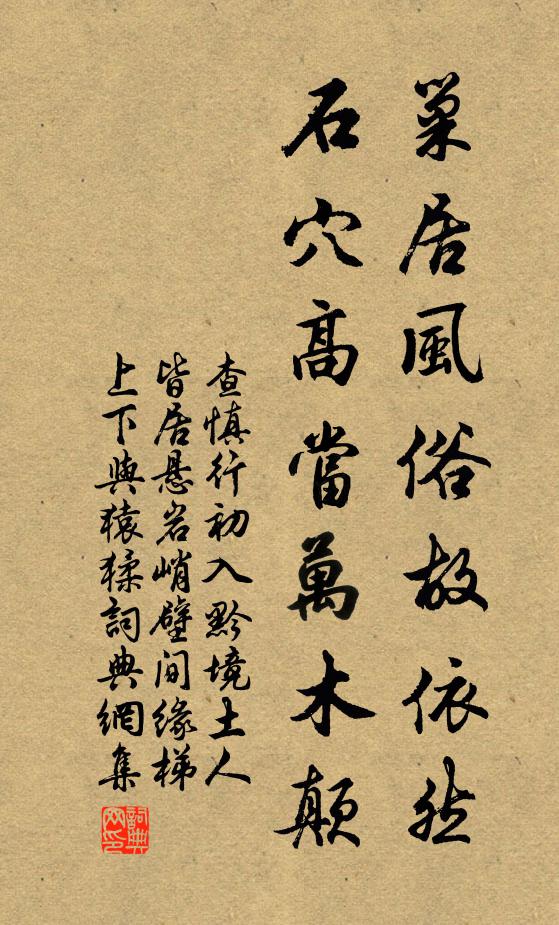 巢居風俗故依然
石穴高當萬木顛
查慎行初入黔境土人
皆居悬岩峭壁间缘梯
上下與猿猱詞典網集
詞典
网印